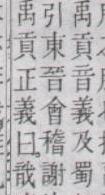 禹貢音義及蜀
引東晉會稽謝
禹貢正義曰